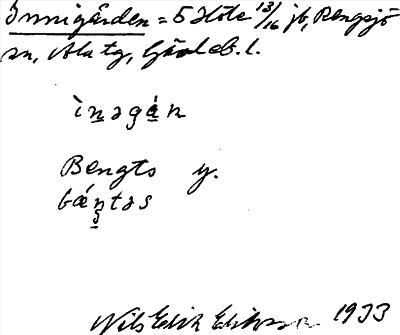 Innigården = 5 Höle 13/16 jb, Rengsjö
sn, Ala tg, Gävleb. l.
ìnəgán
Bengts y.
bǽŋtəs
Nils Erik Eriksson 1933